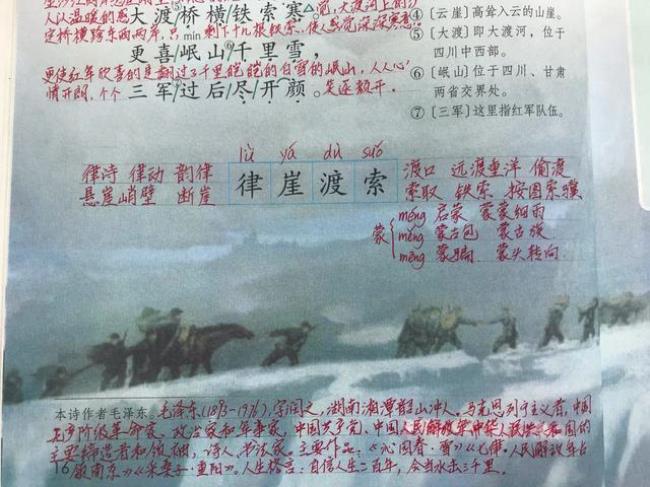 人认温暖的感
大渡⑤桥横/铁索寒。
定桥横跨东西两岸,只min剩下十几根铁索,使人感觉深深寒意。
更喜/岷山⑥/千里雪,
更使红军欣喜的是翻过了千里皑皑的白雪的岷山,人人心
三军/过后/尽/开颜。
情开朗,个个 笑逐颜开。
④〔云崖〕高耸入云的山崖。
⑤〔大渡〕即大渡河,位于
四川中西部。
⑥〔岷山〕位于四川、甘肃
两省交界处。
⑦〔三军〕这里指红军队伍。
lǜ yá dù suǒ
律诗 律动 韵律
悬崖峭壁 断崖
律崖渡索
渡口 远渡重洋 偷渡
索取 铁索 按图索骥
蒙
méng 启蒙 蒙蒙细雨
měng 蒙古包 蒙古族
mēng 蒙骗 蒙头转向
本诗作者毛泽东。毛泽东(1893-1976),字润之,湖南湘潭韶山冲人。马克思列宁主义者,中国
无产阶级革命家、政治家和军事家,中国共产党、中国人民解放军中华人民共和国的
主要缔造者和领袖,诗人,书法家。主要作品:《沁园春·雪》《七律·人民解放军占
领南京》《采桑子·重阳》。人生格言:自信人生二百年,会当水击三千里。
16